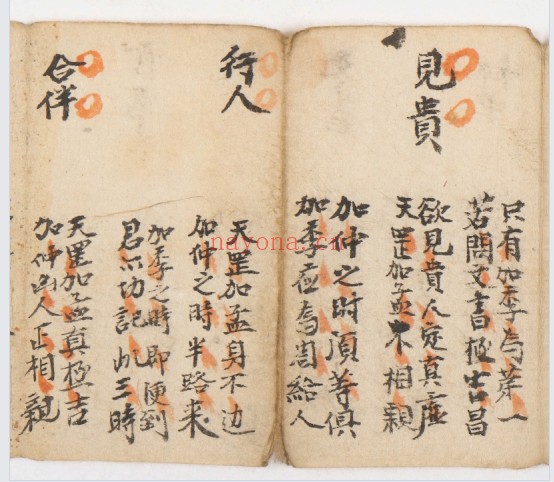 只有加季為第一
若問文書極吉昌
見貴
欲見貴人定真虛
天罡加孟不相親
加仲之時須等俱
加季在為周給人
行人
天罡加孟身不边
加仲之時半路来
加季之時即便到
君不切記此三時
合伴
天罡加孟真極吉
加仲出人正相親
nayona.cn